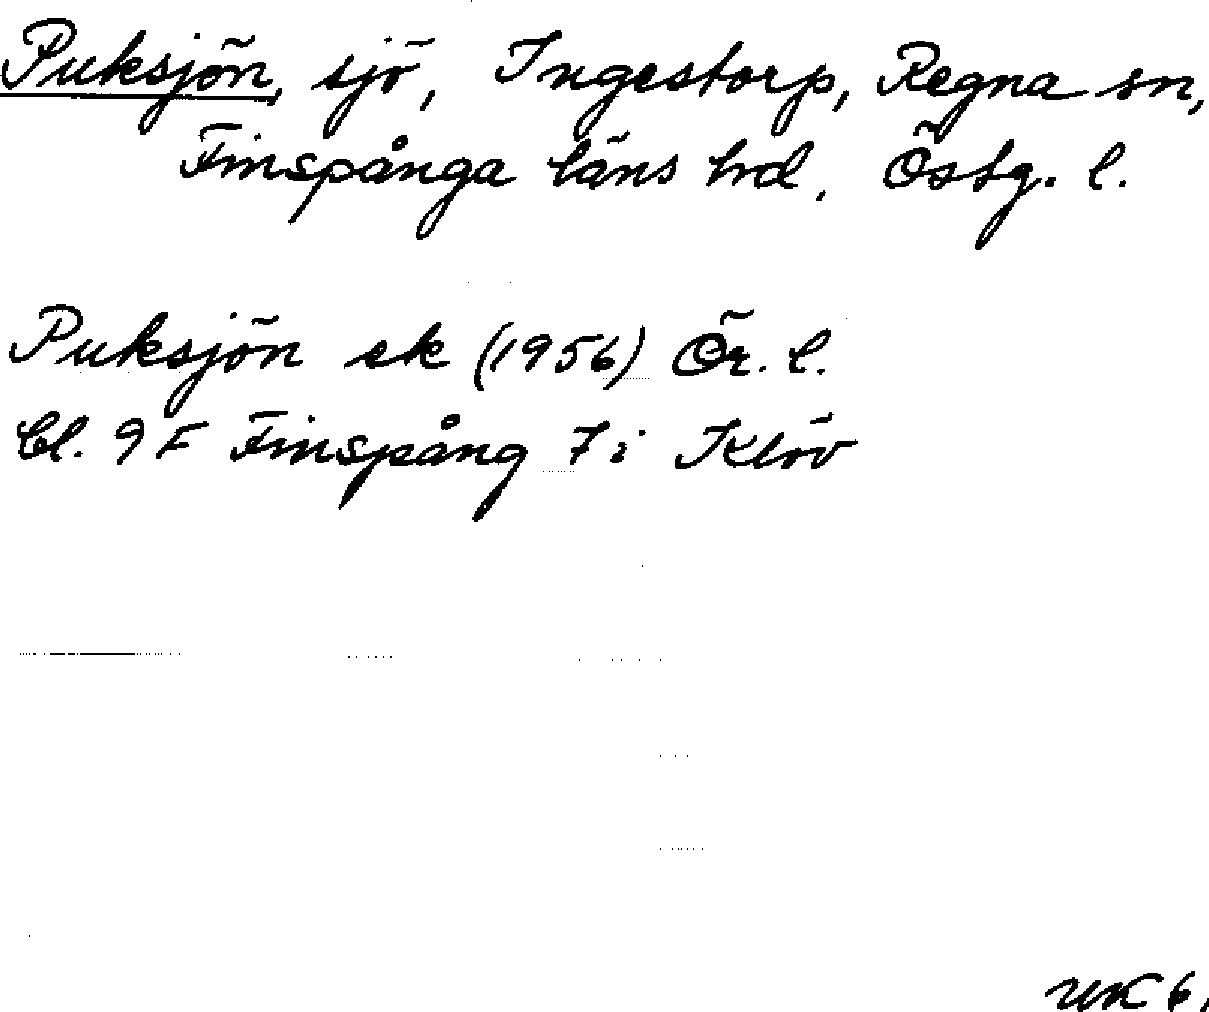 Puksjön, sjö, Ingestorp, Regna sn,
Finspånga läns hd, Östg. l.
Puksjön ek (1956) Ör. l.
bl. 9F Finspång 7i Klöv